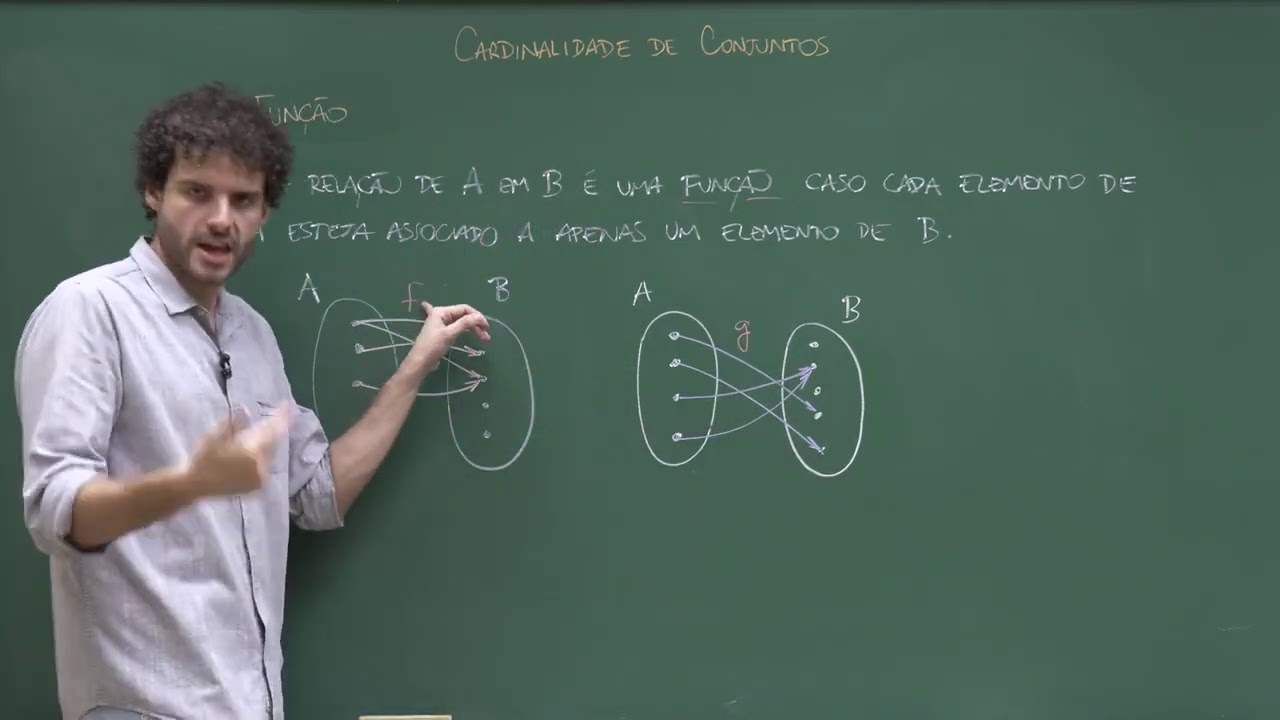 CARDINALIDADE DE CONJUNTOS
FUNÇÃO
RELAÇÃO DE A EM B É UMA FUNÇÃO CASO CADA ELEMENTO DE
ESTEJA ASSOCIADO A APENAS UM ELEMENTO DE B.
A f B
A g B